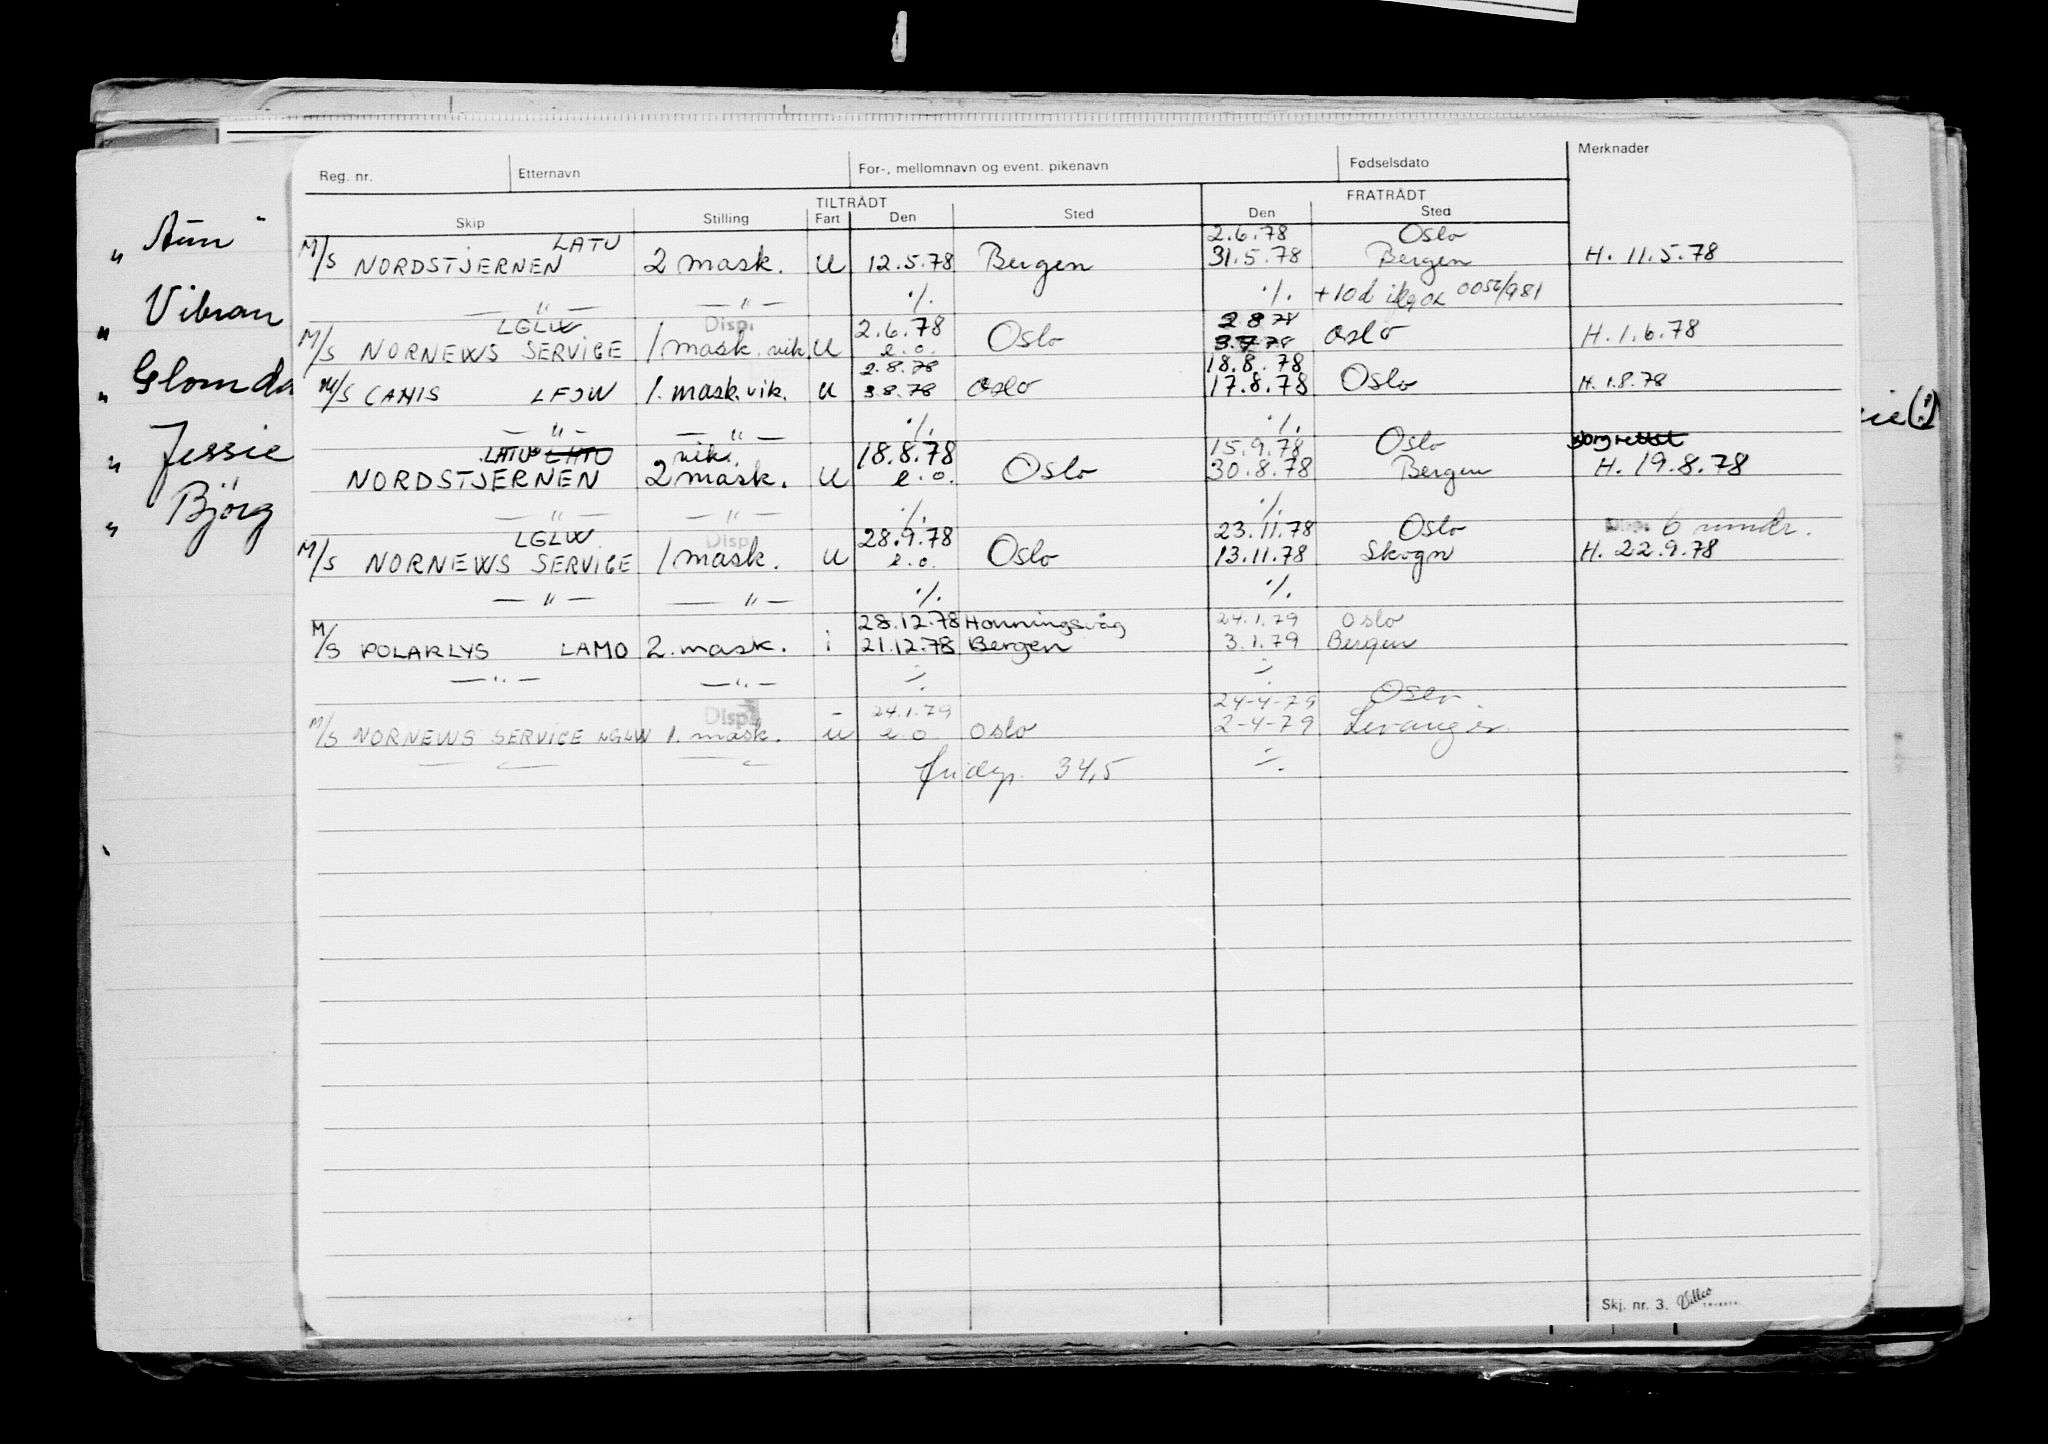 Reg. nr. Etternavn For-, mellomnavn og event. pikenavn Fødselsdato Merknader
TILTRÅDT FRATRÅDT
Skip Stilling Fart Den Sted Den Sted
LATU 2.6.78 Oslo
M/S NORDSTJERNEN 2 mask. U 12.5.78 Bergen 31.5.78 Bergen H. 11.5.78
— " — — " — ./. ./. +10d 0056/981
LGLW Disp. 2.6.78 2 8 78
M/S NORNEWS SERVICE 1 mask. vik U e.o. Oslo 3.7.78 Oslo H. 1.6.78
2.8.78 18.8.78
M/S CANIS LFJW 1. mask. vik. U 3.8.78 Oslo 17.8.78 Oslo H. 1.8.78
— " — — " — ./. ./.
LATU LATU vik. 18.8.78 15.9.78 Oslo
NORDSTJERNEN 2 mask. U e.o. Oslo 30.8.78 Bergen H. 19.8.78
— " — — " — ./. ./.
LGLW Disp. 28.9.78 23.11.78 Oslo Disp. 6 mndr.
M/S NORNEWS SERVICE 1 mask. U e.o. Oslo 13.11.78 Skogn H. 22.9.78
— " — — " — ./. ./.
28.12.78 Honningsvåg 24.1.79 Oslo
M/S POLARLYS LAMO 2. mask. i 21.12.78 Bergen 3.1.79 Bergen
— " — — " — ./. ./.
Disp. 24.1.79 24-4-79 Oslo.
M/S NORNEWS SERVICE LGLW 1. mask. u e.o. Oslo 2-4-79 Levanger
fridgr. 34,5 ./.
Skj. nr. 3.
" Aun "
" Vibran
" Glomda
" Jessie
" Bjørg